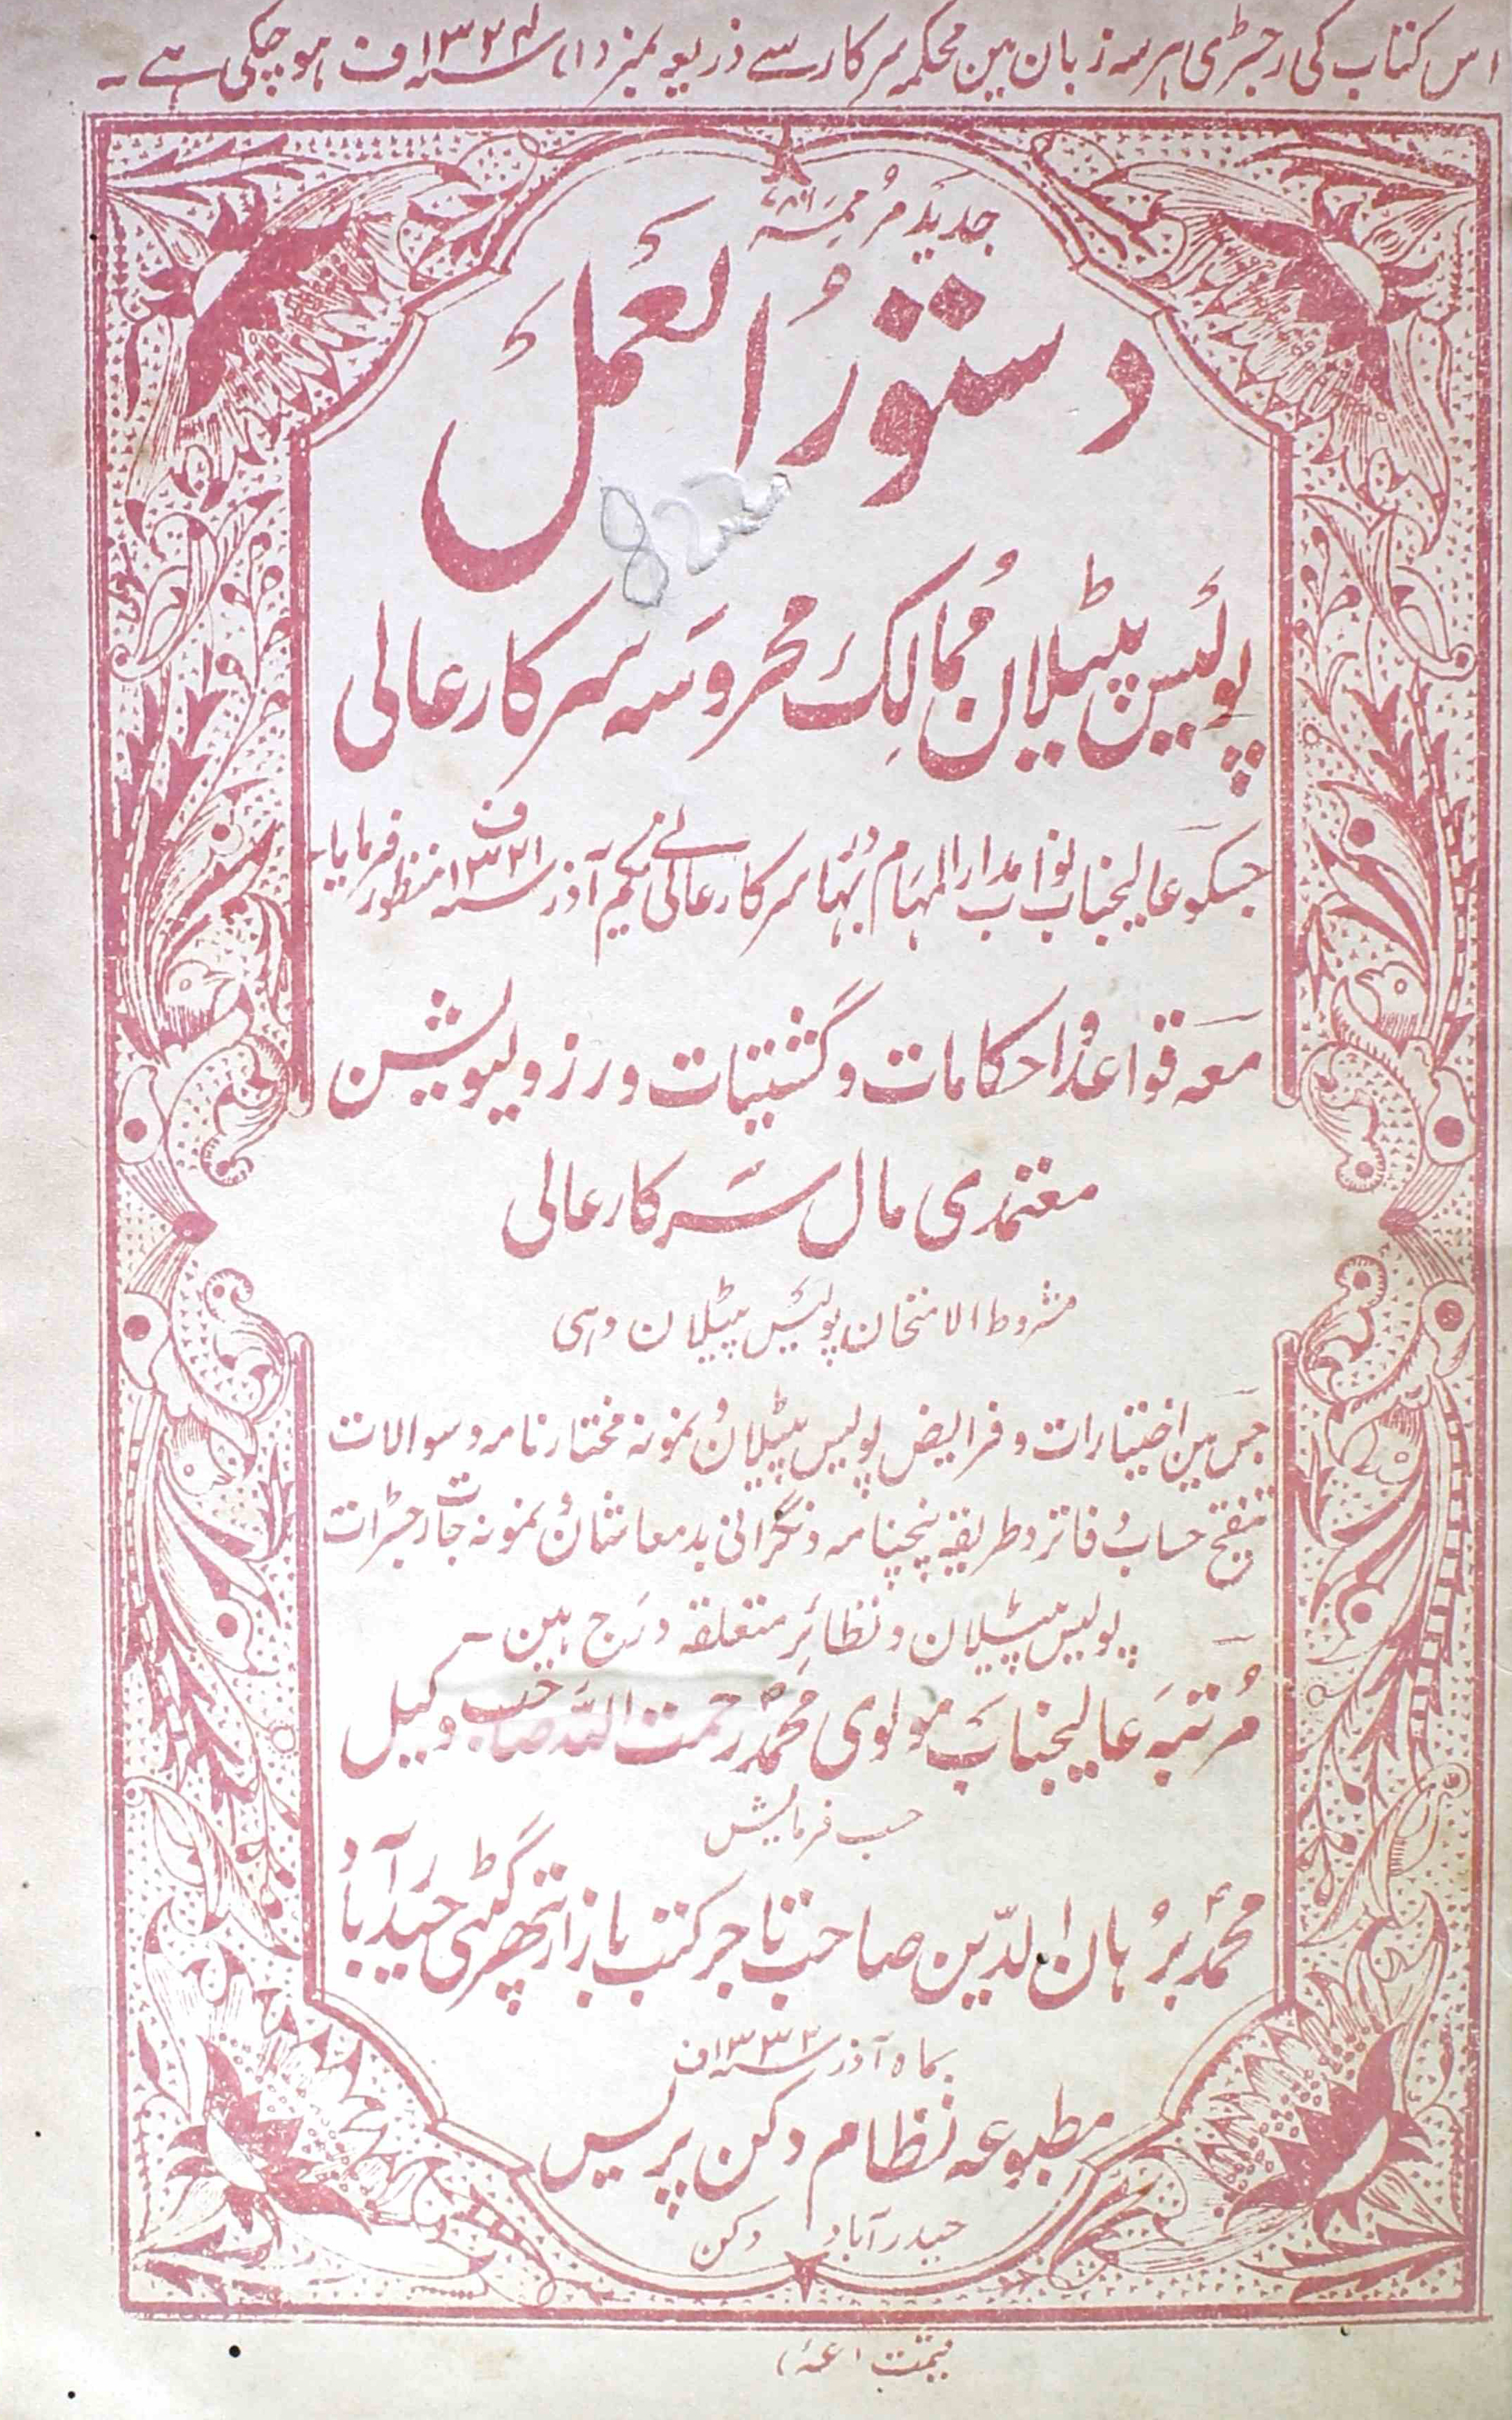 اس کتاب کی رجسٹری ہر سہ زبان مین محکمہ سرکار سے ذریعہ نمبر (۱) سنہ ۱۳۲۴ف ہو چکی ہے ۔
جدید مرممہ
دستور العمل
پولیس پٹیلان ممالک محروسہ سرکار عالی
جسکو عالیجناب نواب مدار المہام بہادر سرکار عالی نے یکم آذر سنہ ۱۳۲۱ف منظور فرمایا۔
معہ قواعد و احکامات و گشتیات و رزولیوشن
معتمدی مال سرکار عالی
مشروط الامتحان پولیس پٹیلان دہی
جس مین اختیارات و فرایض پولیس پٹیلان و نمونہ مختار نامہ و سوالات
تنقیح حساب و فاتر و طریقہ پنچنامہ و نگرانی بدمعاشان و نمونہ جات رجسٹرات
پولیس پٹیلان و نظائر متعلقہ درج ہین ۔
مرتبہ عالیجناب مولوی محمد رحمت اللہ صاحب وکیل
حسب فرمایش
محمد برہان الدین صاحب تاجر کتب بازار پتھر گٹی حیدرآباد
بماہ آذر سنہ ۱۳۳۲ف
مطبوعہ نظام دکن پریس
حیدرآباد دکن
قیمت